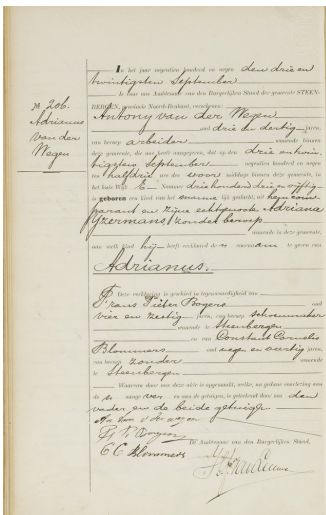 In het jaar negentien honderd en negen den drie en
twintigsten September
is voor ons Ambtenaar van den Burgerlijken Stand der gemeente STEEN-
BERGEN, provincie Noord-Brabant, verschenen:
No 206.
Adrianus
van der
Wegen
Antony van der Wegen
oud drie en dertig jaren,
van beroep arbeider wonende binnen
deze gemeente, die ons heeft aangegeven, dat op den drie en twin-
tigsten September negentien honderd en negen
ten half drie ure des voor middags binnen deze gemeente, in
het huis Wijk E Nummer driehonderd drie en vijftig
is geboren een kind van het manne lijk geslacht, uit hem com-
parant en zijne echtgenoote Adriana
IJzermans, zonder beroep
wonende in deze gemeente,
aan welk kind hij heeft verklaard de voornaam te geven van
Adrianus.
Deze verklaring is geschied in tegenwoordigheid van
Frans Pieter Bogers oud
vier en zestig jaren, van beroep schoenmaker
wonende te Steenbergen
en van Constant Cornelis
Blommers oud negen en veertig jaren,
van beroep zonder wonende
te Steenbergen
Waarvan door ons deze akte is opgemaakt, welke, na gedane voorlezing aan
de aangever en aan de getuigen, is geteekend door ons den
vader en de beide getuigen
An van der wegen
F. P. Bogers
C C Blommers
De Ambtenaar van den Burgerlijken Stand,